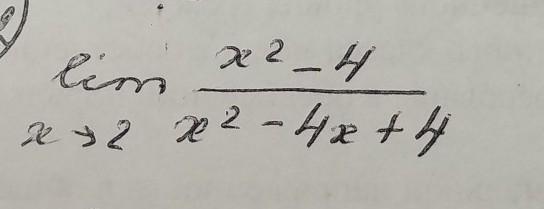 lim x²-4
x→2 x²-4x+4